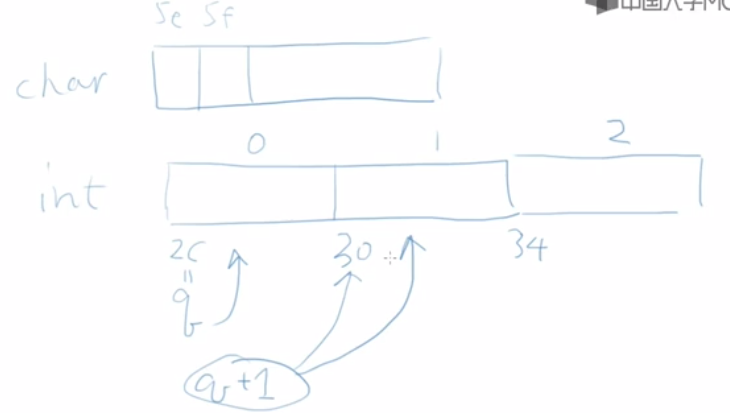 中国大学MO
5e 5f
char
0 1 2
int
2c 30 34
=
q
q+1